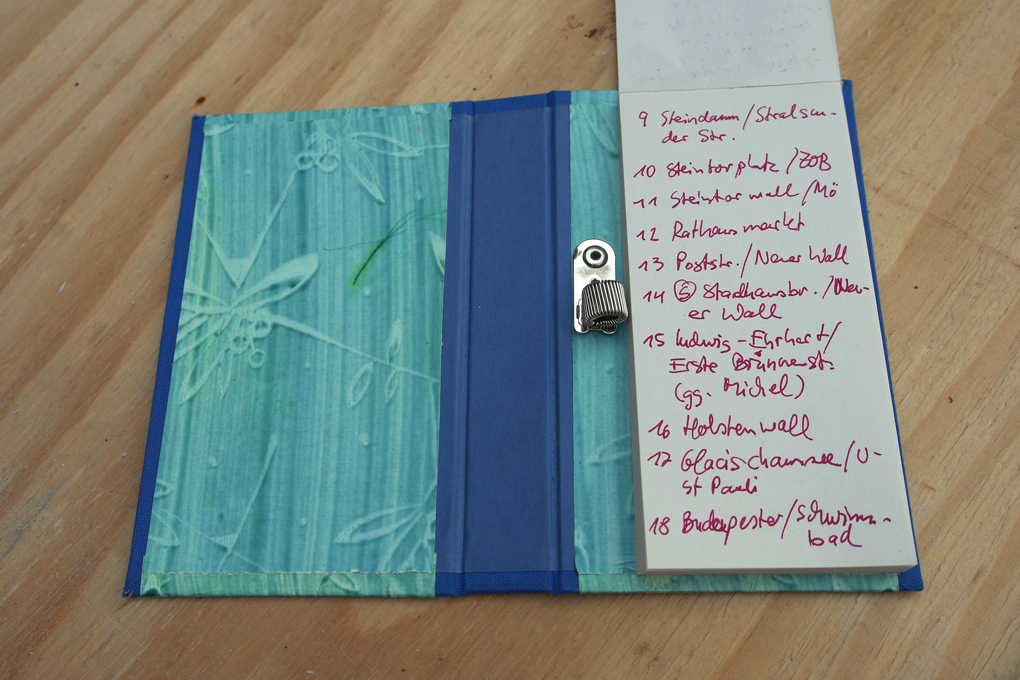 9 Steindamm/Stralsun-
der Str.
10 Steintorplatz/ZOB
11 Steintorwall/Mö
12 Rathausmarkt
13 Poststr./Neuer Wall
14 S Stadthausbr./Neu-
er Wall
15 Ludwig-Erhard/
Erste Brunnenst.
(gg. Michel)
16 Holstenwall
17 Glacischaussee/U-
St Pauli
18 Budapester/Schwimm-
bad